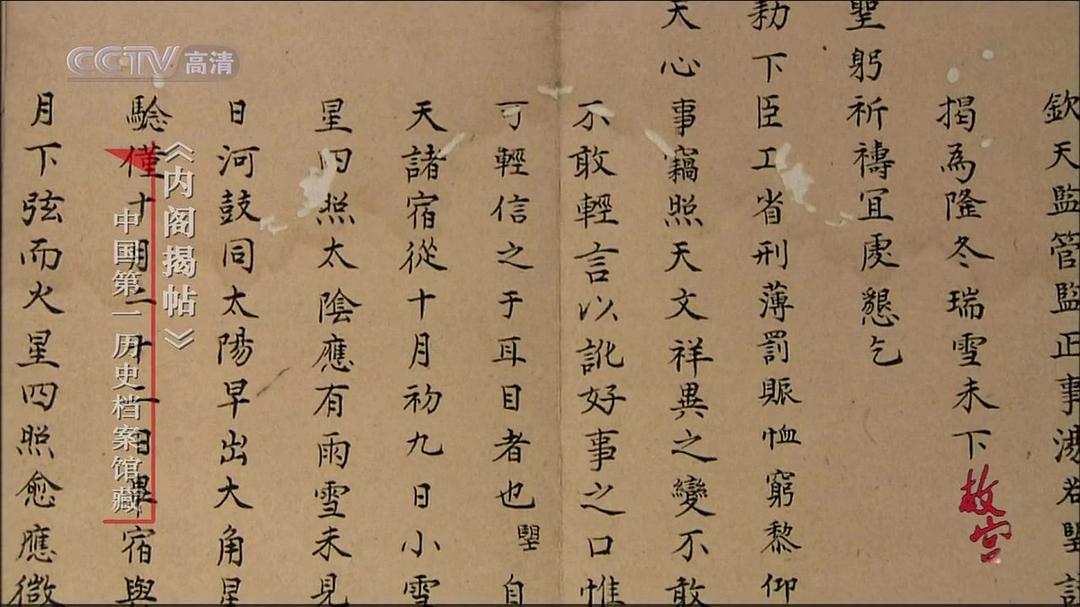 CCTV 高清
欽天監管監正事湯若望
揭為隆冬瑞雪未下
聖躬祈禱宜虔懇乞
勑下臣工省刑薄罰賑恤窮黎仰
天心事竊照天文祥異之變不敢
不敢輕言以訛好事之口惟
可輕信之于耳目者也望自
天諸宿從十月初九日小雪
星四照太陰應有雨雪未見
日河鼓同太陽早出大角星
驗僅十月二十二日畢宿與
月下弦而火星四照愈應微
《内阁揭帖》
中国第一历史档案馆藏
故宫